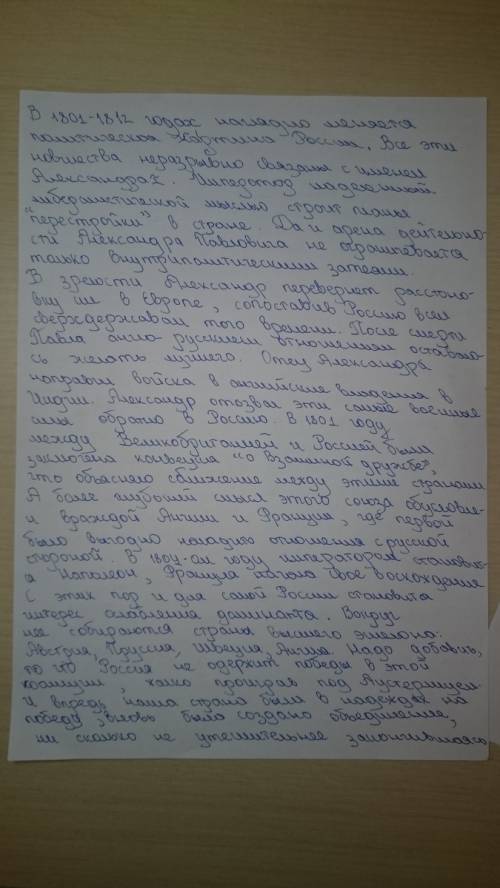 В 1801-1812 годах наглядно меняется
политическая картина России. Все эти
новшества неразрывно связаны с именем
Александра I. Император наделенный
либералистической мыслью строит планы
"перестройки" в стране. Да и арена деятельно-
сти Александра Павловича не ограничевается
только внутриполитическими затеями.
В зрелости Александр перевернет расстано-
вку сил в Европе, сопоставив Россию всем
сверхдержавам того времени. После смерти
Павла англо-русским отношениям оставало-
сь желать лучшего. Отец Александра
направил войска в английские владения в
Индии. Александр отозвал эти самые военные
силы обратно в Россию. В 1801 году
между Великобританией и Россией была
заключена конвенция "о взаимной дружбе",
что объясняло сближение между этими странами
А более глубокий смысл этого союза обусловле-
н враждой Англии и Франции, где первой
было выгодно наладить отношения с русской
стороной. В 1804-ом году императором становит-
ся Наполеон, Франция начала свое восхождение
С этих пор и для самой России становится
интерес ослабления доминанта. Вокруг
нее собираются страны высшего эшелона:
Австрия, Пруссия, Швеция, Англия. Надо добавить,
что Россия не одержит победы в этой
коалиции, проиграв под Аустерлицем.
И впредь наша страна была в надеждах на
победу вновь было создано объединение,
ни сколько не утешительнее закончившаяся